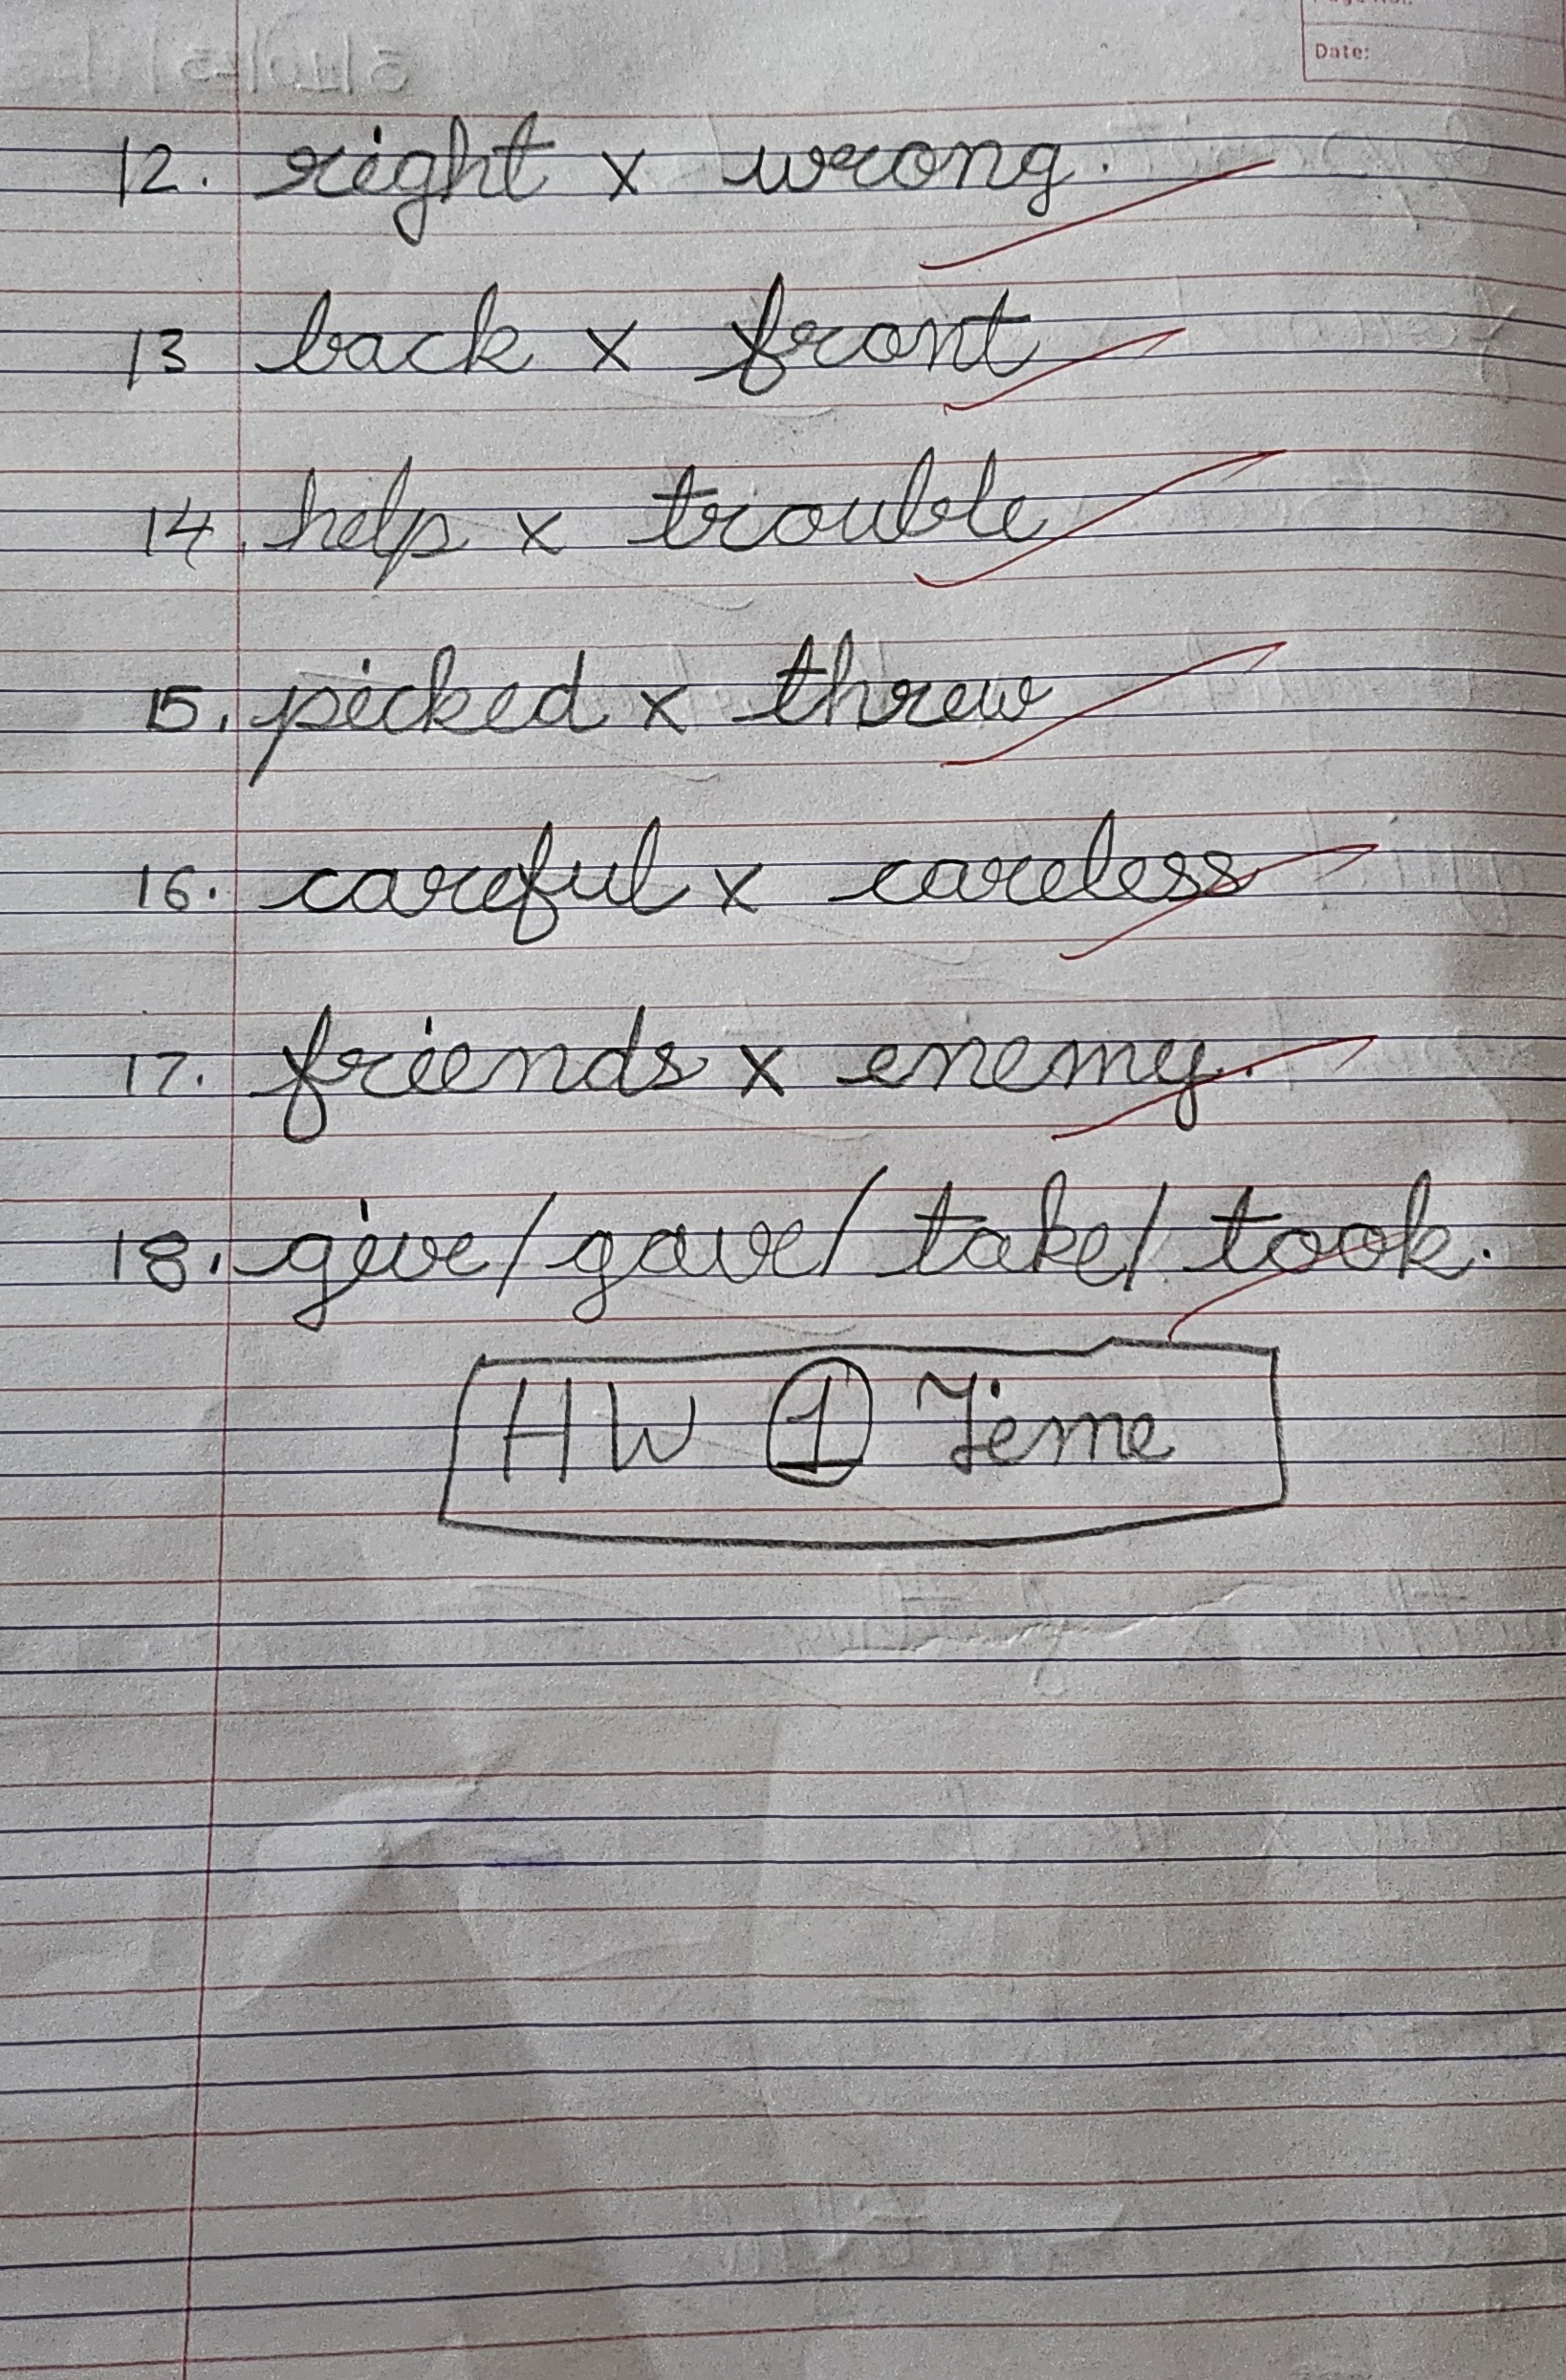 Date:
12. right x wrong.
13 back x front
14. help x trouble
15. picked x threw
16. careful x careless
17. friends x enemy.
18. give/gave/take/took.
HW 1 Time